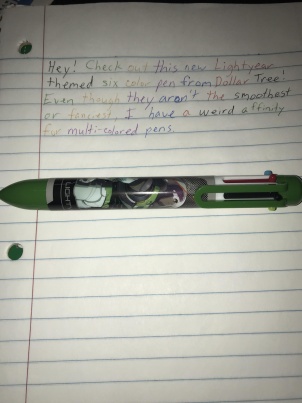 Hey! Check out this new Lightyear
themed six color pen from Dollar Tree!
Even though they aren't the smoothest
or fanciest, I have a weird affinity
fur multi-colored pens.
LIGHT